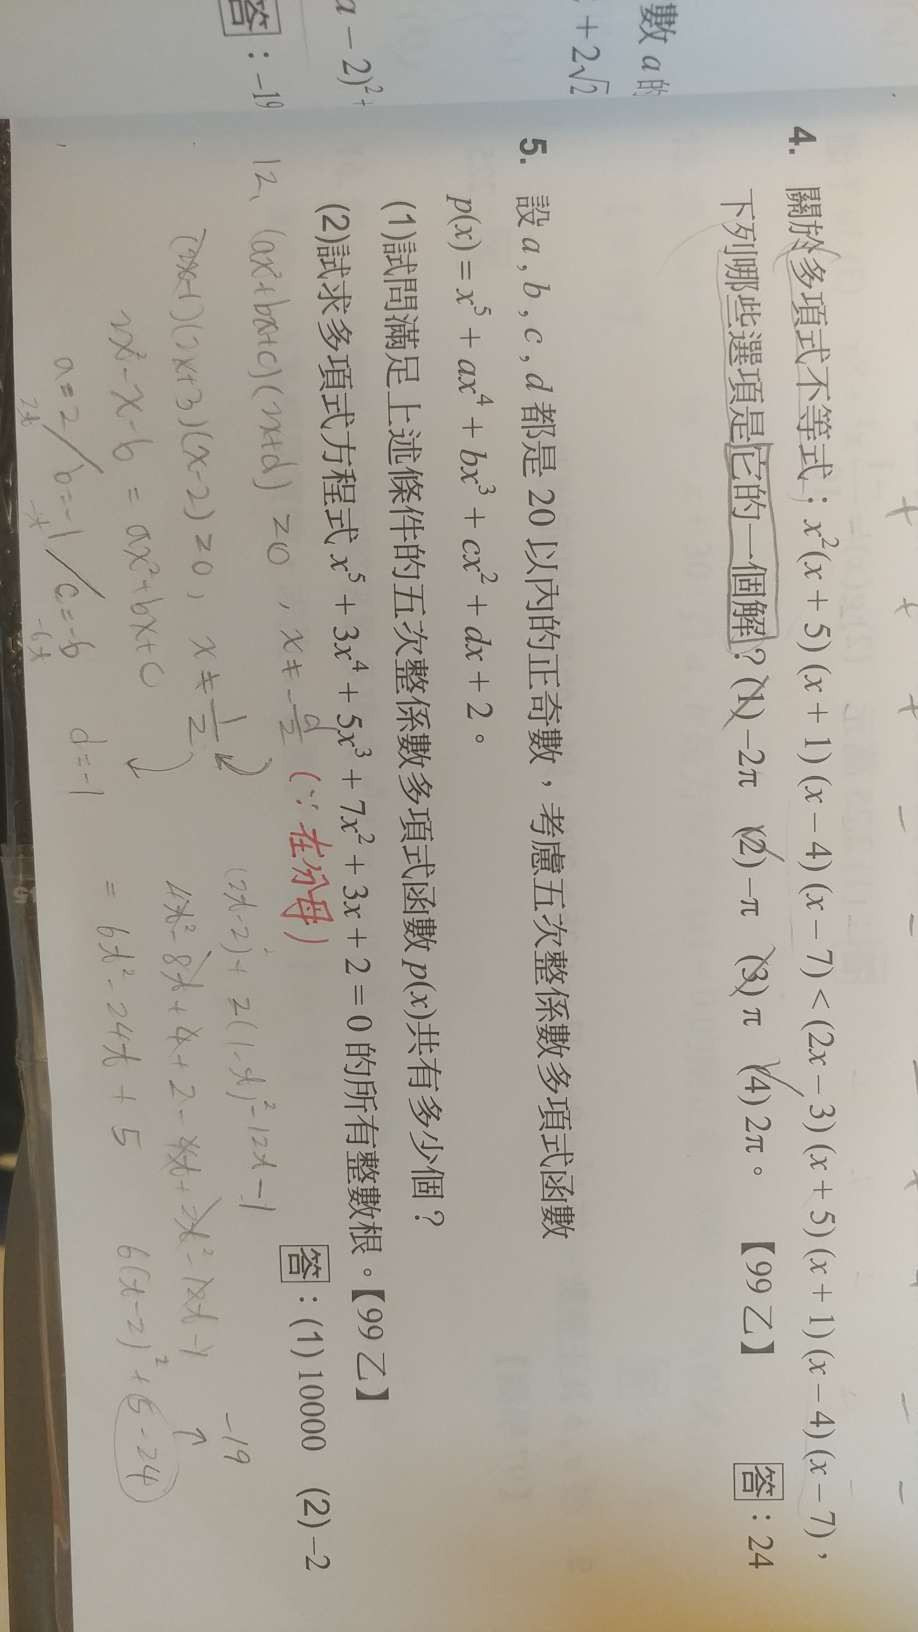 數 a 的
+ 2√2
a − 2)² +
答：−19
4. 關於多項式不等式：x²(x + 5)(x + 1)(x − 4)(x − 7) < (2x − 3)(x + 5)(x + 1)(x − 4)(x − 7)，
下列哪些選項是它的一個解？(1) −2π (2) −π (3) π (4) 2π。 【99 乙】
答：24
5. 設 a , b , c , d 都是 20 以內的正奇數，考慮五次整係數多項式函數
p(x) = x⁵ + ax⁴ + bx³ + cx² + dx + 2。
(1)試問滿足上述條件的五次整係數多項式函數 p(x)共有多少個？
(2)試求多項式方程式 x⁵ + 3x⁴ + 5x³ + 7x² + 3x + 2 = 0 的所有整數根。【99 乙】
答：(1) 10000 (2) −2
12、(ax²+bx+c)(2x+d) ≥0 , x ≠ −d/2 (∵在分母)
(2x−1)(2x+3)(x−2) ≥0, x ≠ 1/2
2x²−x−6 = ax²+bx+c
a=2 / b=−1 / c=−6 d=−1
2t −t −6t
(2t−2)² + 2(1−t)² −12t −1
= 6t² − 24t + 5
6(t−2)² + 5 − 24
−19